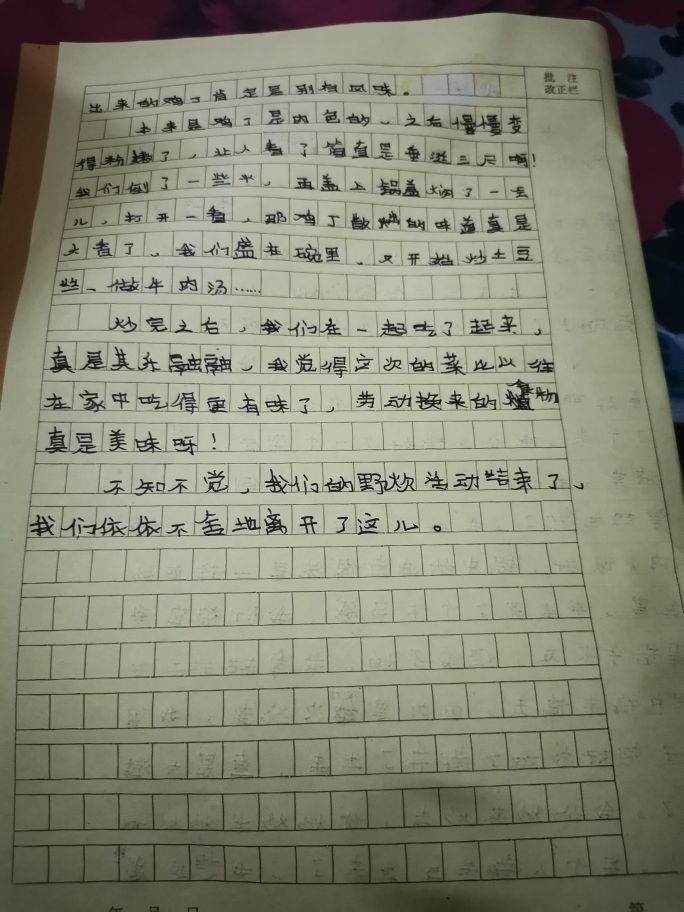 批 注
改正栏
出来的鸡丁肯定是别有风味。
本来是鸡丁是肉色的,之后慢慢变
得粉嫩了,让人看了简直是垂涎三尺啊!
我们倒了一些水,再盖上锅盖焖了一会
儿,打开一看,那鸡丁散发的味道真是
太香了,我们盛在碗里,又开始炒土豆
丝、做牛肉汤……
炒完之后,我们在一起吃了起来,
真是其乐融融,我觉得这次的菜比以往
在家中吃得更有味了,劳动换来的食物
真是美味呀!
不知不觉,我们的野炊活动结束了,
我们依依不舍地离开了这儿。
年 月 日
第